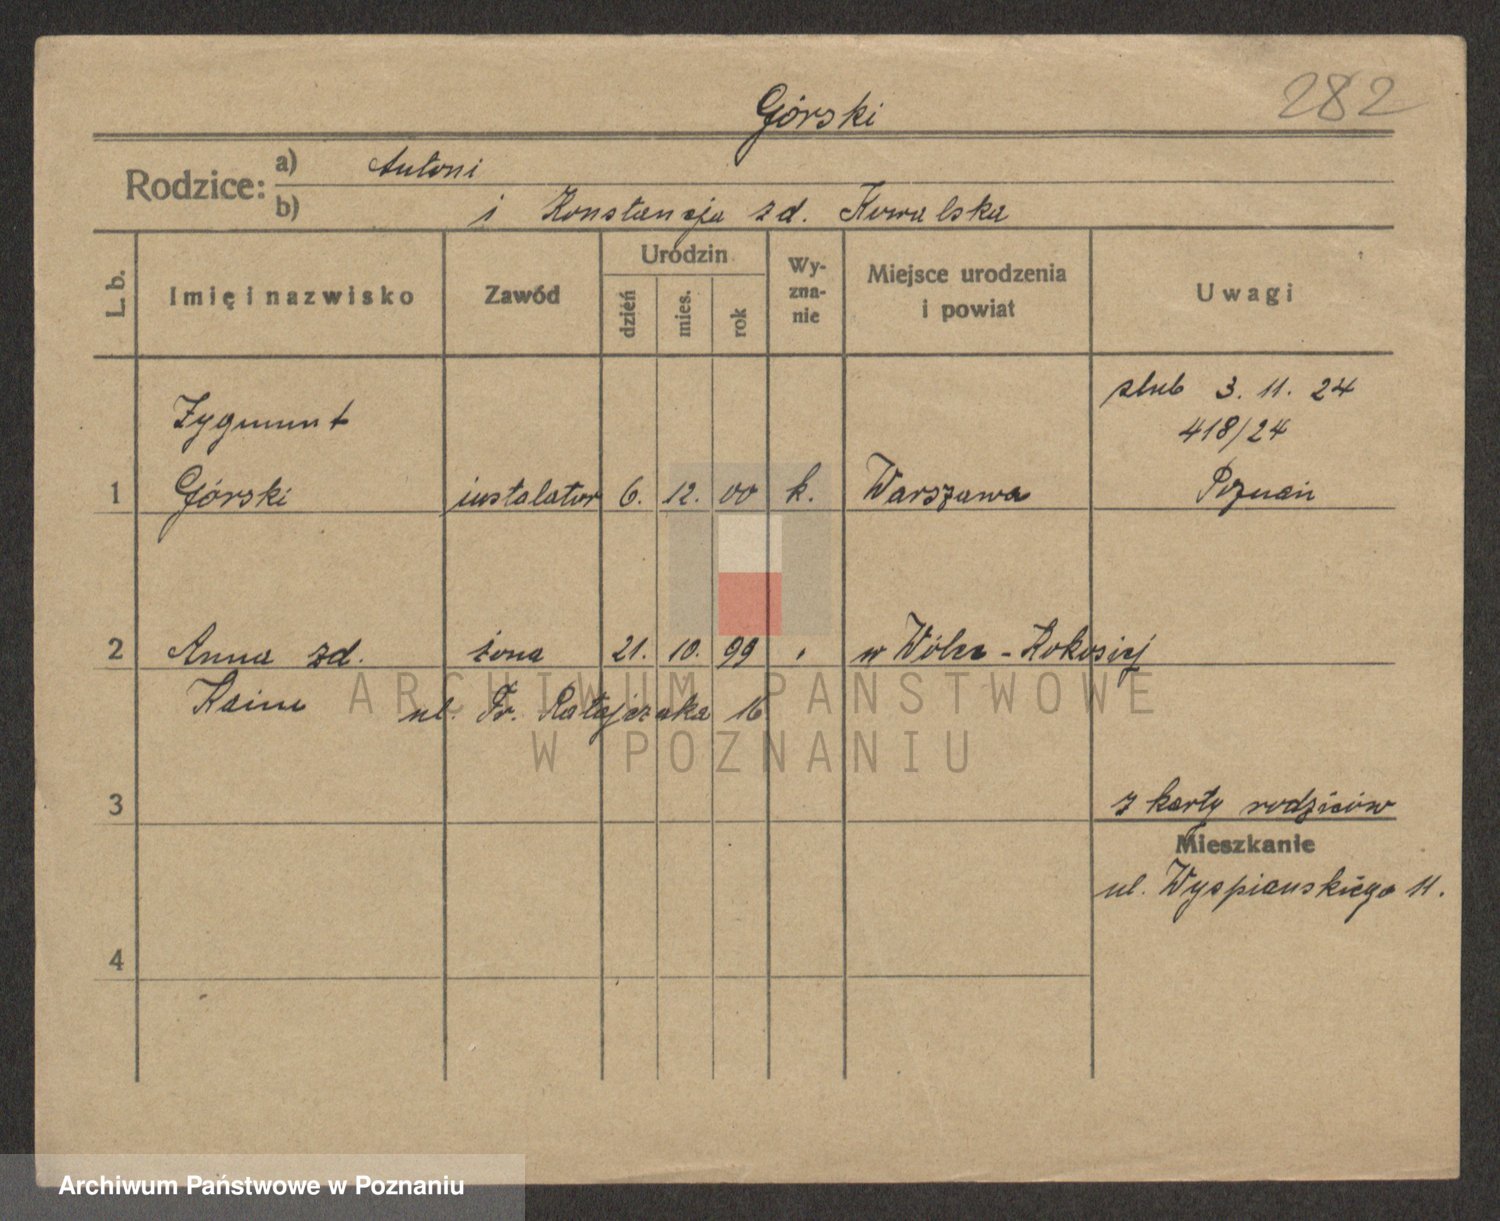 282
Górski
Rodzice: a) Antoni
b) i Konstancja zd. Kowalska
L. b.
Imię i nazwisko
Zawód
Urodzin
dzień
mies.
rok
Wy-
zna-
nie
Miejsce urodzenia
i powiat
Uwagi
ślub 3. 11. 24
418/24
Zygmunt
1 Górski instalator 6. 12. 00 k. Warszawa Poznań
2 Anna zd. żona 21. 10. 99 w Wólce - Rokosiej
ul. Fr. Ratajczaka 16
3
z karty rodziców
Mieszkanie
ul. Wyspiańskiego 11.
4
ARCHIWUM PAŃSTWOWE
W POZNANIU
Archiwum Państwowe w Poznaniu